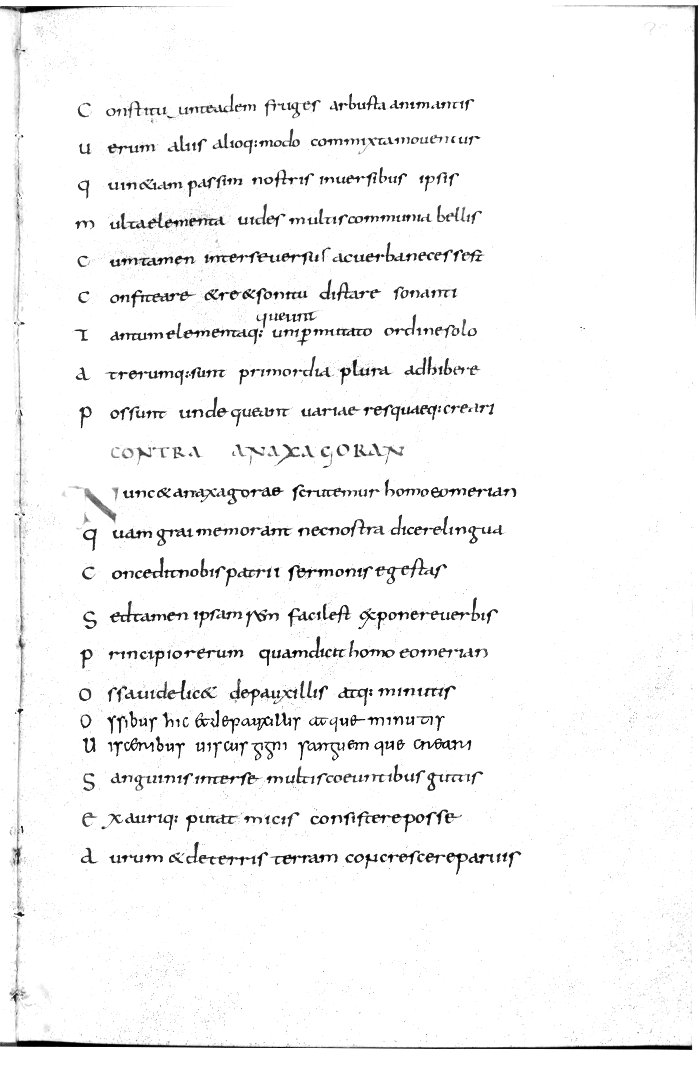 C onstitu unteadem fruges arbusta animantis
U erum aliis alioq: modo commixtamouentur
q uin&iam passim nostris inuersibus ipsis
m ultaelementa uides multiscommunia bellis
C umtamen interseuersus acuerbanecessest
C onfiteare &re&sonitu distare sonanti
queunt
T antumelementaq: unip̄mutato ordinesolo
A trerumq:sunt primordia plura adhibere
P ossunt undequeant uariae resquaeq:creari
CONTRA ANAXAGORAN
N unc&anaxagorae scrutemur homoeomerian
q uamgraimemorant necnostra dicerelingua
C onceditnobispatrii sermonisegestas
S edtamenipsam facilest exponereuerbis
P rincipiorerum quamdicit homoeomerian
O ssauidelic& depauxillis atq: minutis
O ssibus hic etdepauxillis atque minutis
U isceribus uiscus gigni sanguemque creari
S anguinisinterse multiscoeuntibusguttis
E xauriq: putat micis consistereposse
A urum &deterris terram concrescereparuis